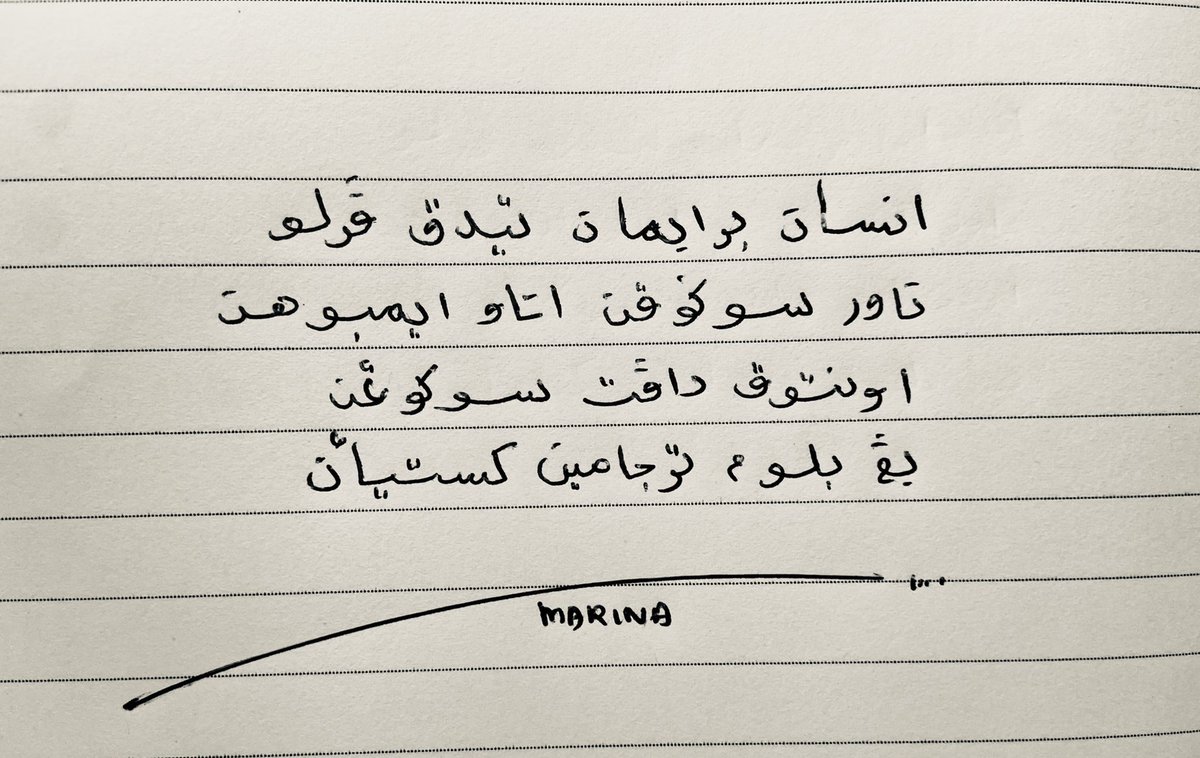 انسان برايمان تيدق ڤرلو
تاور سوݢوقن اتاو ايمبوهن
اونتوق داڤت سوكوڠن
يڠ بلوم ترجامين كستيأن
MARINA